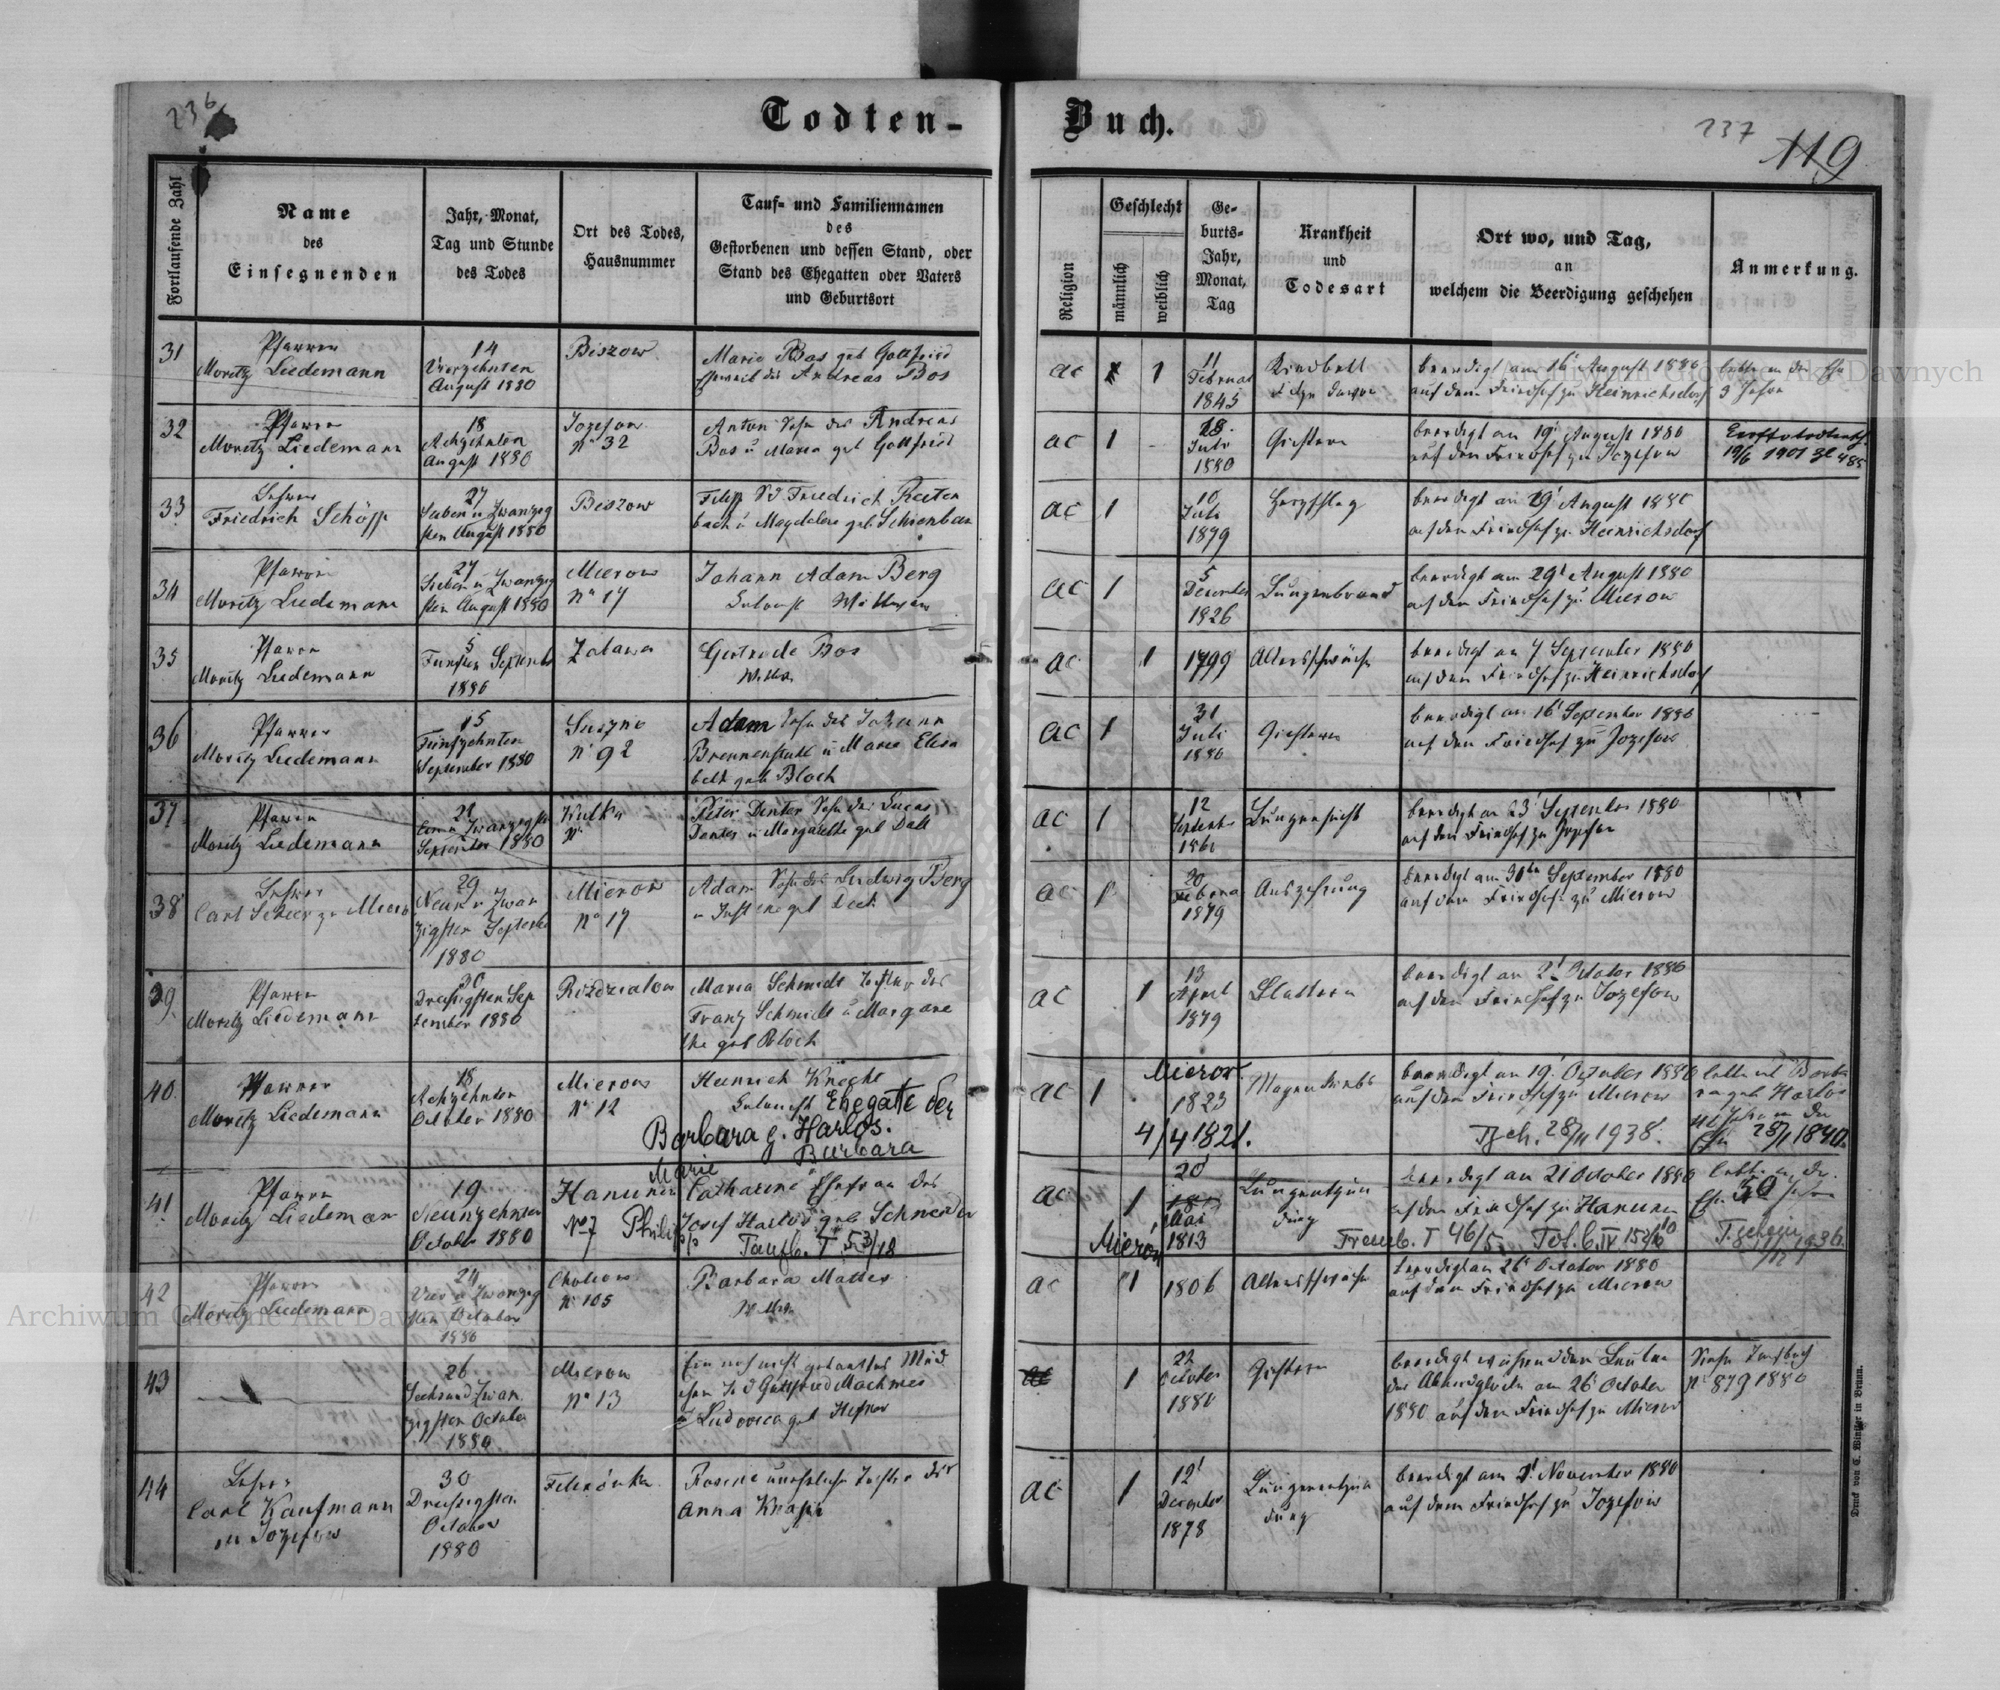 236
Todten-
Buch.
237
119
Fortlaufende Zahl
Name
des
Einsegnenden
Jahr, Monat,
Tag und Stunde
des Todes
Ort des Todes,
Hausnummer
Tauf- und Familiennamen
des
Gestorbenen und dessen Stand, oder
Stand des Ehegatten oder Vaters
und Geburtsort
Religion
Geschlecht
männlich
weiblich
Ge-
burts-
Jahr,
Monat,
Tag
Krankheit
und
Todesart
Ort wo, und Tag,
an
welchem die Beerdigung geschehen
Anmerkung.
31
Pfarrer
Moritz Liedemann
14
Vierzehnten
August 1880
Biszow
Maria Bos geb Gottfried
Eheweib des Andreas Bos
ac 1
11
Februar
1845
Kindbett
beerdigt am 16' August 1880
auf dem Friedhof zu Heinrichsdorf
lebte in der Ehe
3 Jahre
32
Pfarrer
Moritz Liedemann
18
Achzehnten
August 1880
Jozefow
No 32
Anton Sohn des Andreas
Bos u Maria geb Gottfried
ac 1
Juli
1880
Gichtern
beerdigt am 19' August 1880
auf dem Friedhof zu Jozefow
19/6 1901 Zl 485
33
Lehrer
Friedrich Schöpp
27
Sieben u Zwanzig
sten August 1880
Biszow
Filipp S d Friedrich Reiten
bach u Magdalena geb Schienbein
ac 1
10
Juli
1879
Herzschlag
beerdigt am 29' August 1880
auf dem Friedhof zu Heinrichsdorf
34
Pfarrer
Moritz Liedemann
27
Sieben u Zwanzig
sten August 1880
Mierow
No 17
Johann Adam Berg
Colonist Wittwer
ac 1
5
Dezember
1826
Lungenbrand
beerdigt am 29' August 1880
auf dem Friedhof zu Mierow
35
Pfarrer
Moritz Liedemann
5
Fünften September
1880
Zalawa
Gertrude Bos
Wittwe
ac 1
1799
Altersschwäche
beerdigt am 7 September 1880
auf dem Friedhof zu Heinrichsdorf
36
Pfarrer
Moritz Liedemann
15
Fünfzehnten
September 1880
Suszno
No 92
Adam Sohn des Johann
Brennenstuhl u Maria Elisa
beth geb Bloch
ac 1
31
Juli
1880
Gichtern
beerdigt am 16' September 1880
auf dem Friedhof zu Jozefow
37
Pfarrer
Moritz Liedemann
September 1880
Kulka
No
Peter Denter Sohn des Lucas
Denter u Margarethe geb Dall
ac 1
12
Lungensucht
beerdigt am 23' September 1880
auf dem Friedhof zu Jozefow
38
Lehrer
Carl Scheer zu Mierow
29
Neun u Zwan
zigsten September
1880
Mierow
No 17
Adam Sohn des Ludwig Berg
ac 1
20
Februar
1879
Auszehrung
beerdigt am 30ten September 1880
auf dem Friedhof zu Mierow
39
Pfarrer
Moritz Liedemann
30
Dreisigsten Sep
tember 1880
Rozdzialow
Maria Schmidt Tochter des
Franz Schmidt u Margare
the geb Bloch
ac 1
13
April
1879
Blattern
beerdigt am 2' October 1880
auf dem Friedhof zu Jozefow
40
Pfarrer
Moritz Liedemann
18
Achzehnten
October 1880
Mierow
No 12
Heinrich Knecht
Colonist Ehegatte der
Barbara g. Harlos.
ac 1
Mierow
1823
4/4 1821.
beerdigt am 19' October 1880
auf dem Friedhof zu Mierow
28/11 1938.
lebte mit Barba
ra geb Harlos
28/1 1840.
41
Pfarrer
Moritz Liedemann
19
Neunzehnten
October 1880
Hanunin
No 7
Marie Barbara
Catharine Ehefrau des
Philipp Josef Harlos geb Schneider
Taufb. T 53/18
ac 1
20
Mai
1813
Mierów
Lungenentzün
dung
beerdigt am 21 October 1880
auf dem Friedhof zu Hanunin
Trauub. T 46/5
lebte in der
Ehe 50 Jahre
42
Pfarrer
Moritz Liedemann
24
Vier u Zwanzig
sten October
1880
No 105
Barbara Mattes
Wittwe
ac 1
1806
Altersschwäche
beerdigt am 26' October 1880
auf dem Friedhof zu Mierow
43
26
Sechsund Zwan
zigsten October
1880
Mierow
No 13
Ein noch nicht getauftes Mäd
chen T d Gottfried Machmer
u Ludovica geb Hefner
1
22
October
1880
Gichtern
beerdigt während dem Leuten
der Abendglocke am 26' October
1880 auf dem Friedhof zu Mierow
Siehe Taufbuch
No 879 1880
44
Lehrer
Carl Kaufmann
in Jozefow
30
Dreisigsten
October
1880
Filixówka
Rosine uneheliche Tochter der
Anna Knapp
ac 1
12'
Dezember
1878
Lungenentzün
dung
beerdigt am 2' November 1880
auf dem Friedhof zu Jozefow
Druck von C. Winkler in Brünn.
Archiwum Główne Akt Dawnych
Archiwum Główne Akt Dawnych